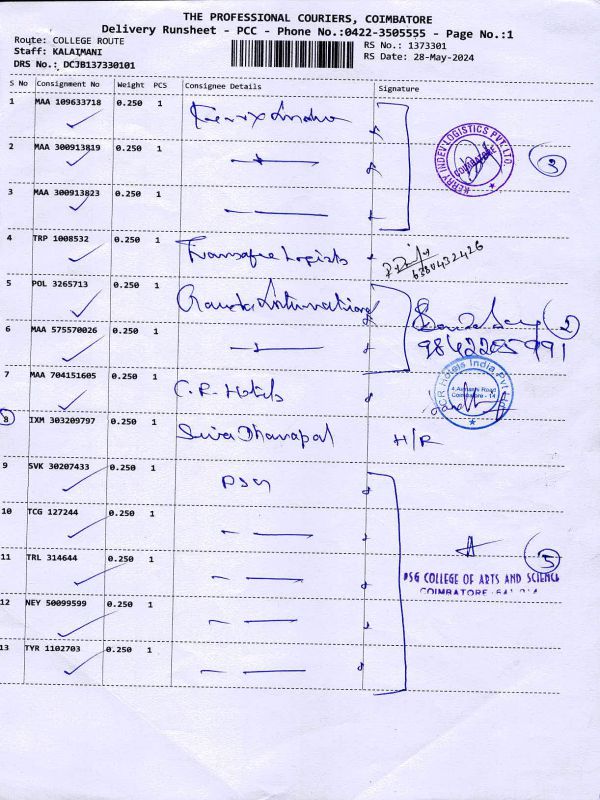 THE PROFESSIONAL COURIERS, COIMBATORE
Delivery Runsheet - PCC - Phone No.:0422-3505555 - Page No.:1
Route: COLLEGE ROUTE
Staff: KALAIMANI
DRS No.: DCJB137330101
RS No.: 1373301
RS Date: 28-May-2024
S No Consignment No Weight PCS Consignee Details Signature
1 MAA 109633718 0.250 1
2 MAA 300913819 0.250 1
3 MAA 300913823 0.250 1
KERRY INDEV LOGISTICS PVT. LTD.
COIMBATORE
3
4 TRP 1008532 0.250 1 Transafe Logists
6380432426
5 POL 3265713 0.250 1
6 MAA 575570026 0.250 1
2
7 MAA 704151605 0.250 1 C.R. Hotels
CR Hotels India Pvt Ltd
Coimbatore - 14
8 IXM 303209797 0.250 1 Siva Dhanapal H/R
9 SVK 30207433 0.250 1 PSG
10 TCG 127244 0.250 1
11 TRL 314644 0.250 1
5
PSG COLLEGE OF ARTS AND SCIENCE
COIMBATORE
12 NEY 50099599 0.250 1
13 TYR 1102703 0.250 1